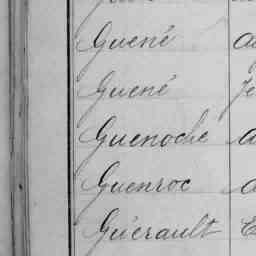 Guené
Guené Je
Guenoché
Guenroc
Guérault